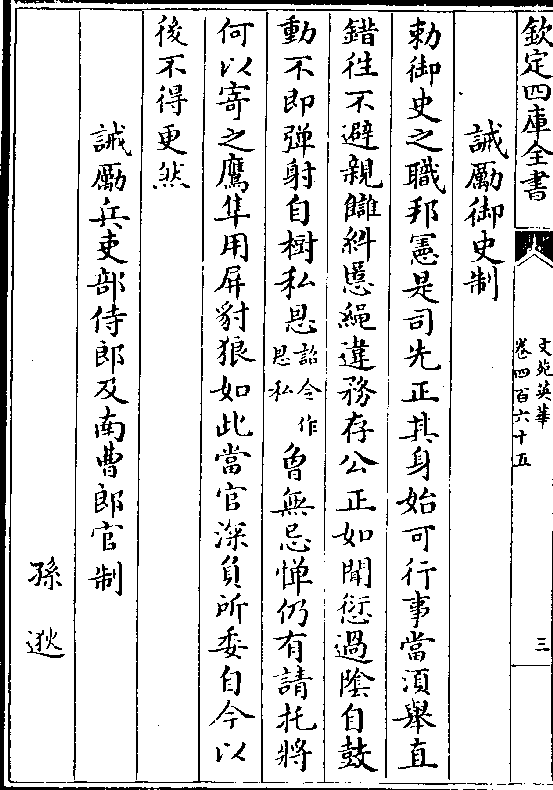 欽定四庫全書
文苑英華
卷四百六十五
三
誡勵御史制
勅御史之職邦憲是司先正其身始可行事當須舉直
錯徃不避親讎糾慝繩違務存公正如聞愆過隂自鼓
動不即弹射自樹私恩詔令作恩私曾無忌憚仍有請托將
何以寄之鷹隼用屏豺狼如此當官深負所委自今以
後不得更然
誡勵兵吏部侍郎及南曹郎官制
孫逖